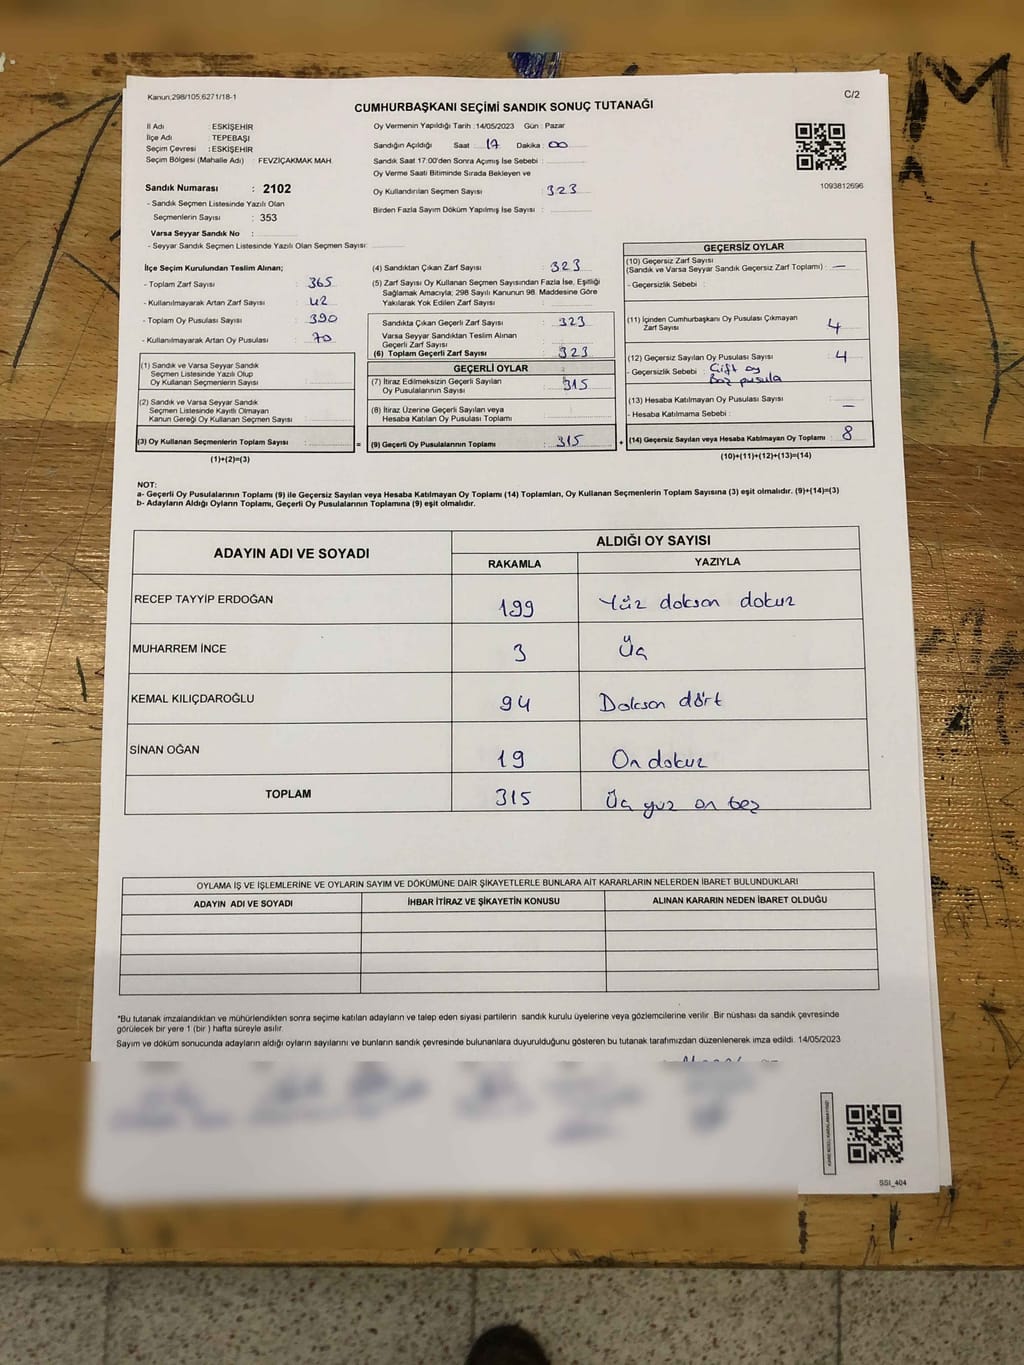 Kanun,298/105;6271/18-1
C/2
CUMHURBAŞKANI SEÇİMİ SANDIK SONUÇ TUTANAĞI
İl Adı : ESKİŞEHİR
İlçe Adı : TEPEBAŞI
Seçim Çevresi : ESKİŞEHİR
Seçim Bölgesi (Mahalle Adı) : FEVZİÇAKMAK MAH.
Sandık Numarası : 2102
- Sandık Seçmen Listesinde Yazılı Olan
Seçmenlerin Sayısı : 353
Varsa Seyyar Sandık No :
- Seyyar Sandık Seçmen Listesinde Yazılı Olan Seçmen Sayısı:
Oy Vermenin Yapıldığı Tarih :14/05/2023 Gün : Pazar
Sandığın Açıldığı Saat : 17 Dakika : 00
Sandık Saat 17:00'den Sonra Açımış İse Sebebi :
Oy Verme Saati Bitiminde Sırada Bekleyen ve
Oy Kullandırılan Seçmen Sayısı : 323
Birden Fazla Sayım Döküm Yapılmış İse Sayısı :
1093812696
İlçe Seçim Kurulundan Teslim Alınan;
- Toplam Zarf Sayısı : 365
- Kullanılmayarak Artan Zarf Sayısı : 42
- Toplam Oy Pusulası Sayısı : 390
- Kullanılmayarak Artan Oy Pusulası : 70
(1) Sandık ve Varsa Seyyar Sandık
Seçmen Listesinde Yazılı Olup
Oy Kullanan Seçmenlerin Sayısı :
(2) Sandık ve Varsa Seyyar Sandık
Seçmen Listesinde Kayıtlı Olmayan
Kanun Gereği Oy Kullanan Seçmen Sayısı :
(3) Oy Kullanan Seçmenlerin Toplam Sayısı : =
(1)+(2)=(3)
(4) Sandıktan Çıkan Zarf Sayısı : 323
(5) Zarf Sayısı Oy Kullanan Seçmen Sayısından Fazla İse, Eşitliği
Sağlamak Amacıyla; 298 Sayılı Kanunun 98. Maddesine Göre
Yakılarak Yok Edilen Zarf Sayısı :
Sandıkta Çıkan Geçerli Zarf Sayısı : 323
Varsa Seyyar Sandıktan Teslim Alınan
Geçerli Zarf Sayısı :
(6) Toplam Geçerli Zarf Sayısı : 323
GEÇERLİ OYLAR
(7) İtiraz Edilmeksizin Geçerli Sayılan
Oy Pusulalarının Sayısı : 315
(8) İtiraz Üzerine Geçerli Sayılan veya
Hesaba Katılan Oy Pusulası Toplamı :
(9) Geçerli Oy Pusulalarının Toplamı : 315 +
GEÇERSİZ OYLAR
(10) Geçersiz Zarf Sayısı
(Sandık ve Varsa Seyyar Sandık Geçersiz Zarf Toplamı) : —
- Geçersizlik Sebebi :
(11) İçinden Cumhurbaşkanı Oy Pusulası Çıkmayan
Zarf Sayısı : 4
(12) Geçersiz Sayılan Oy Pusulası Sayısı : 4
- Geçersizlik Sebebi : Çift oy
Boz pusula
(13) Hesaba Katılmayan Oy Pusulası Sayısı : —
- Hesaba Katılmama Sebebi :
(14) Geçersiz Sayılan veya Hesaba Katılmayan Oy Toplamı : 8
(10)+(11)+(12)+(13)=(14)
NOT:
a- Geçerli Oy Pusulalarının Toplamı (9) ile Geçersiz Sayılan veya Hesaba Katılmayan Oy Toplamı (14) Toplamları, Oy Kullanan Seçmenlerin Toplam Sayısına (3) eşit olmalıdır. (9)+(14)=(3)
b- Adayların Aldığı Oyların Toplamı, Geçerli Oy Pusulalarının Toplamına (9) eşit olmalıdır.
ADAYIN ADI VE SOYADI ALDIĞI OY SAYISI
RAKAMLA YAZIYLA
RECEP TAYYİP ERDOĞAN 199 Yüz doksan dokuz
MUHARREM İNCE 3 Üç
KEMAL KILIÇDAROĞLU 94 Doksan dört
SİNAN OĞAN 19 On dokuz
TOPLAM 315 Üç yuz on beş
OYLAMA İŞ VE İŞLEMLERİNE VE OYLARIN SAYIM VE DÖKÜMÜNE DAİR ŞİKAYETLERLE BUNLARA AİT KARARLARIN NELERDEN İBARET BULUNDUKLARI
ADAYIN ADI VE SOYADI İHBAR İTİRAZ VE ŞİKAYETİN KONUSU ALINAN KARARIN NEDEN İBARET OLDUĞU
*Bu tutanak imzalandıktan ve mühürlendikten sonra seçime katılan adayların ve talep eden siyasi partilerin sandık kurulu üyelerine veya gözlemcilerine verilir. Bir nüshası da sandık çevresinde
görülecek bir yere 1 (bir) hafta süreyle asılır.
Sayım ve döküm sonucunda adayların aldığı oyların sayılarını ve bunların sandık çevresinde bulunanlara duyurulduğunu gösteren bu tutanak tarafımızdan düzenlenerek imza edildi. 14/05/2023
SSI_404